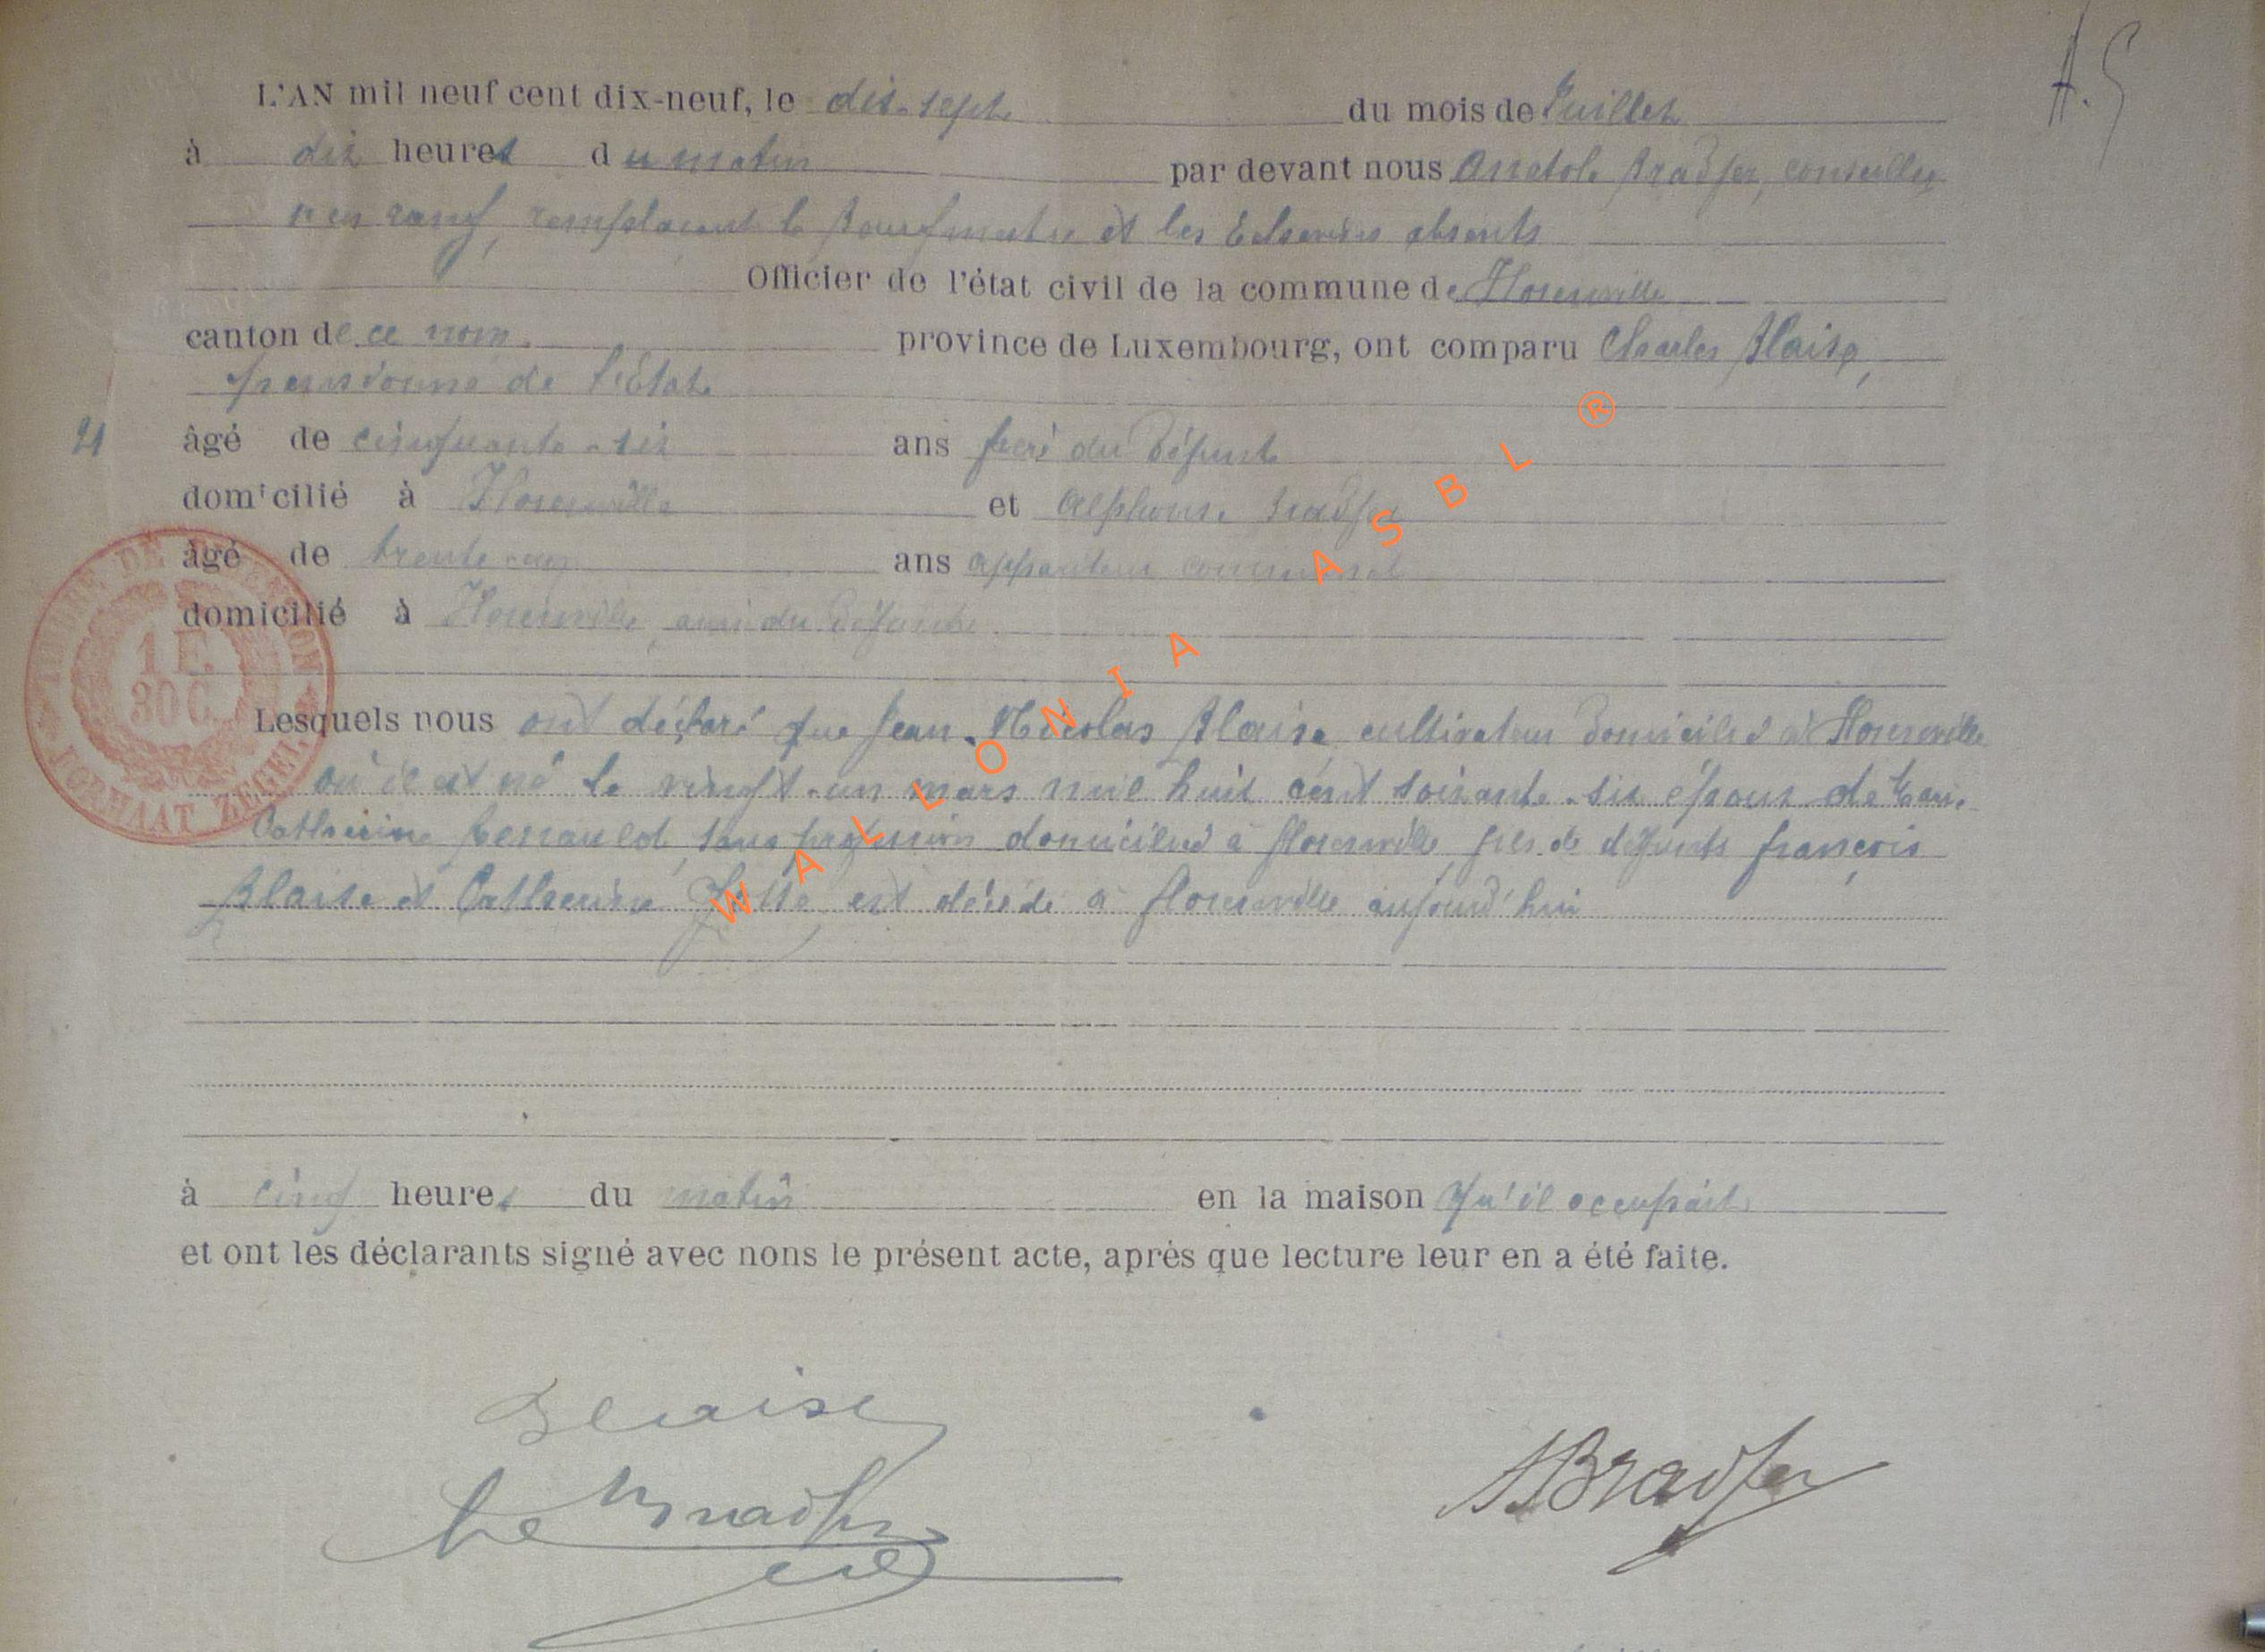 A. S
L'AN mil neuf cent dix-neuf, le dix-sept du mois de Juillet
à dix heures du matin par devant nous Anatole Bradfer, conseiller
en rang, remplaçant le Bourgmestre et les Echevins absents
Officier de l'état civil de la commune de Florenville
canton de ce nom. province de Luxembourg, ont comparu Charles Blaise,
pensionné de l'Etat
21 âgé de cinquante-six ans frère du défunt
domicilié à Florenville et Alphonse Bradfer
âgé de trente- ans appariteur communal
domicilié à Florenville, ami du défunt
TIMBRE DE DIMENSION
1 F. 30 C.
FORMAAT ZEGEL
Lesquels nous ont déclaré que Jean-Nicolas Blaise cultivateur domicilié à Florenville
où il est né le vingt-un mars mil huit cent soixante-six époux de
Catherine, sans profession domiciliée à Florenville, fils de défunts François
Blaise et Catherine est décédé à Florenville aujourd'hui
à cinq heures du matin en la maison qu'il occupait
et ont les déclarants signé avec nons le présent acte, après que lecture leur en a été faite.
Blaise
Bradfer
ABradfer
WALLONIA ASBL ®